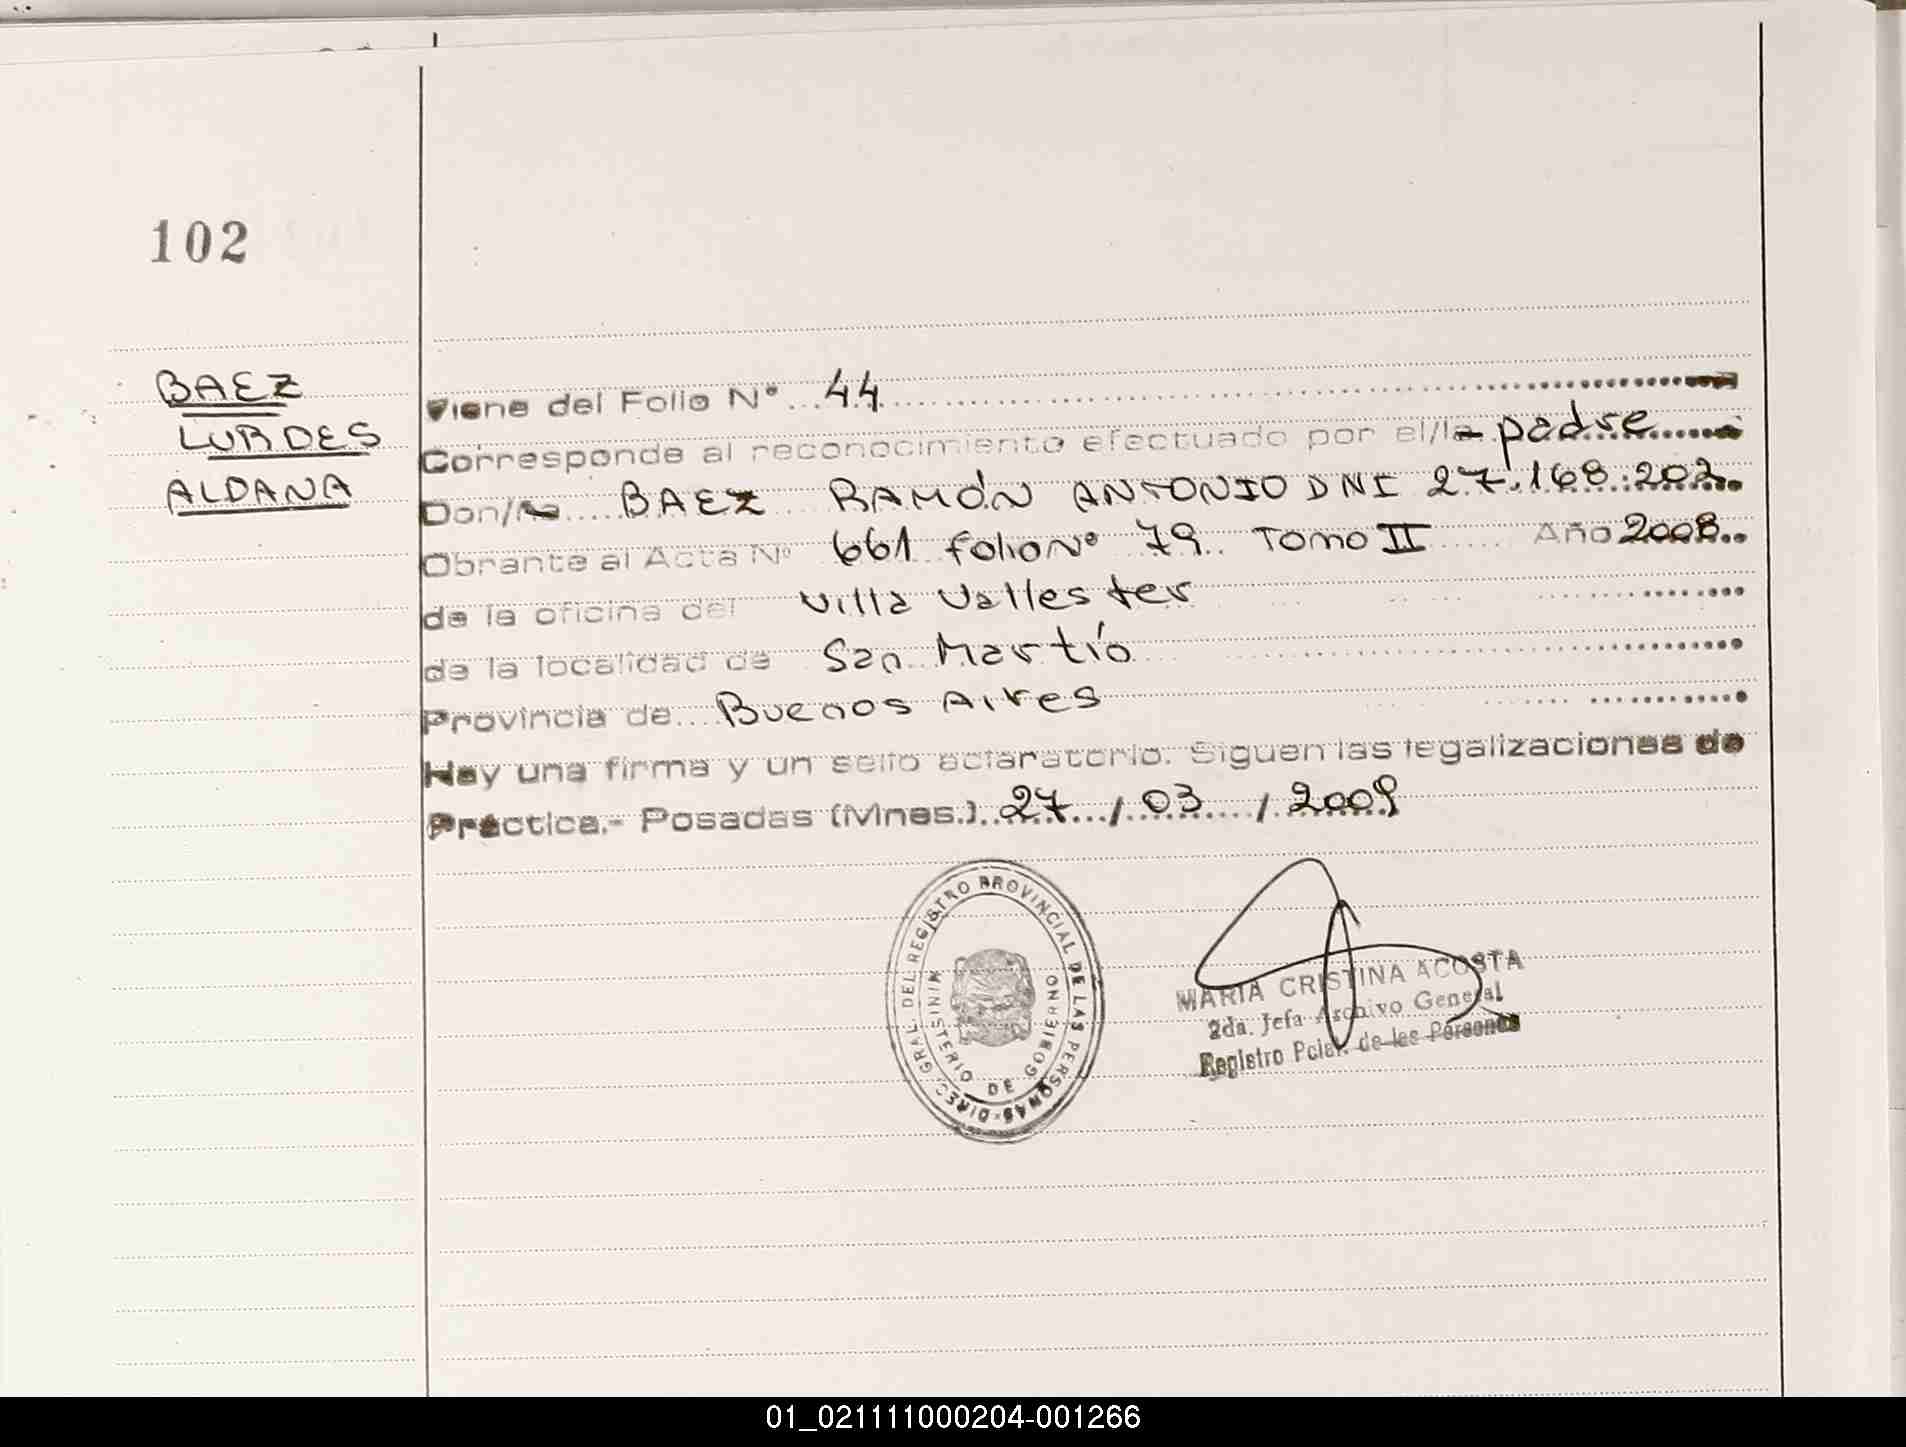 102
BAEZ
LURDES
ALDANA
Viene del Folio Nº 44
Corresponde al reconocimiento efectuado por el/la padre
Don/ña BAEZ RAMÓN ANTONIO DNI 27.168.202
Obrante al Acta Nº 661 folio Nº 79 Tomo II Año 2008
de la oficina del Villa Vallester
de la localidad de San Martín
Provincia de Buenos Aires
Hay una firma y un sello aclaratorio. Siguen las legalizaciones de
Práctica.- Posadas (Mnes.) 27 / 03 / 2009
DIREC. GRAL. DEL REGISTRO PROVINCIAL DE LAS PERSONAS
MINISTERIO DE GOBIERNO
MARIA CRISTINA ACOSTA
2da. Jefa Archivo General
Registro Pcial. de las Personas
01_021111000204-001266